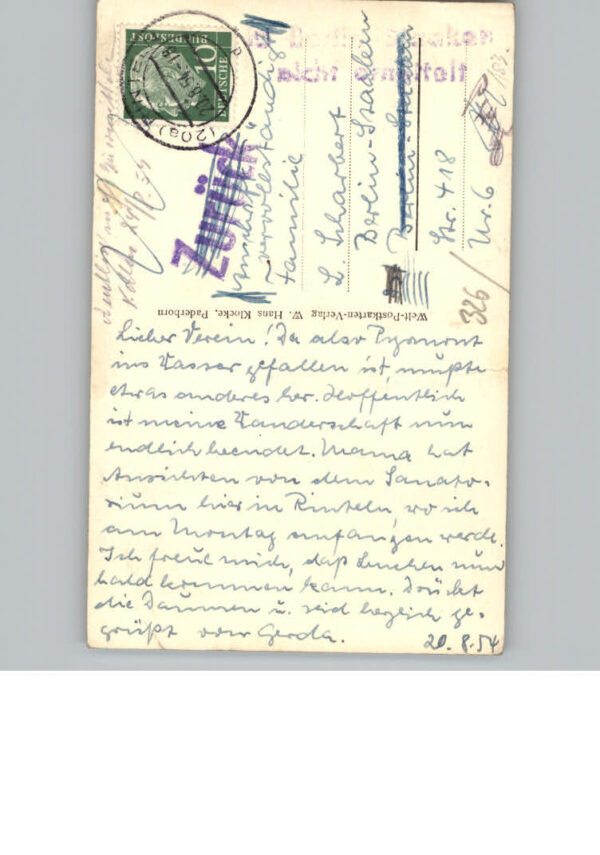 Lieber Verein! Da also Pyrmont
ins Wasser gefallen ist, mußte
etwas anderes her. Hoffentlich
ist meine Wanderschaft nun
endlich beendet. Mama hat
Ansichten von dem Sanato-
rium hier in Rinteln, wo ich
am Montag anfangen werde.
Ich freue mich, daß nun
bald kommen kann. Drückt
die Daumen u. seid herzlich ge-
grüßt von Gerda.
20.8.54
Welt-Postkarten-Verlag W. Hans Klocke, Paderborn
Familie
L. Scharbert
Berlin-Staaken
Berlin-Staaken
Str. 418
Nr. 6
Zurück
Anschrift
vervollständigt
326
183.
DEUTSCHE
BUNDESPOST
10
(20a) RINTELN